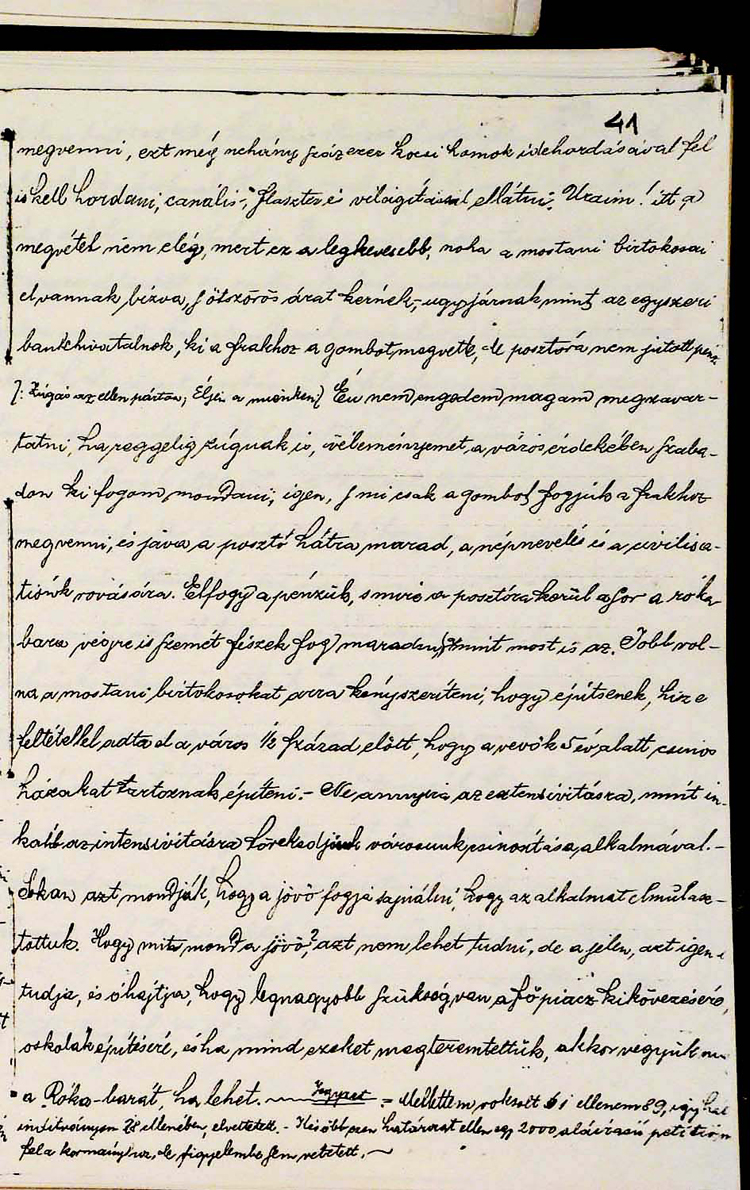 41
megvenni, ezt még nehány százezer kocsi homok idehordásával fel
is kell hordani, canális-, flaszter és világítással ellátni. Uraim! itt a
megvétel nem elég, mert ez a legkevesebb, noha a mostani birtokosai
el vannak bízva, s ötszörös árat kérnek, ugy járnak mint az egyszeri
bankhivatalnok, ki a frakhoz a gombot megvette, de posztóra nem jutott pénz
/: Zúgás az ellen párton, Éljen a mienken/ Én nem engedem magam megzavar-
tatni, ha reggelig zúgnak is, véleményemet, a város érdekében szaba-
don ki fogom mondani, igen, s mi csak a gombot fogjuk a frakhoz
megvenni, és java a posztó hátra marad, a népnevelés és a civilisa-
tiónk rovására. Elfogy a pénzük, s mire a posztóra kerül a sor a róka
bara végre is szemét fészek fog maradni, mint most is az. Jobb vol-
na a mostani birtokosokat arra kényszeríteni, hogy építsenek, hisz e
feltétellel adta el a város ½ század előtt, hogy a vevők 5 év alatt csinos
házakat tartoznak építeni. - Ne annyira az extensivitásra, mint in-
kább az intensivitásra törekedjünk városunk csinosítása alkalmával. -
Sokan azt mondják, hogy a jövő fogja sajnálni, hogy az alkalmat elmulasz-
tottuk. Hogy mit mond a jövő? azt nem lehet tudni, de a jelen, azt igen
tudja, és óhajtja, hogy legnagyobb szükség van a főpiacz kikövezésére,
oskolák építésére, és ha mind ezeket megteremtettük, akkor vegyük
a Róka-barát, ha lehet. Jegyzet = Mellettem voksolt 61 ellenem 89, így hát
indítványom 28 ellenében, elvettetett. - Később ezen határozat ellen egy 2000 aláírású petition
fel a kormányhoz, de figyelembe sem vétetett. ~